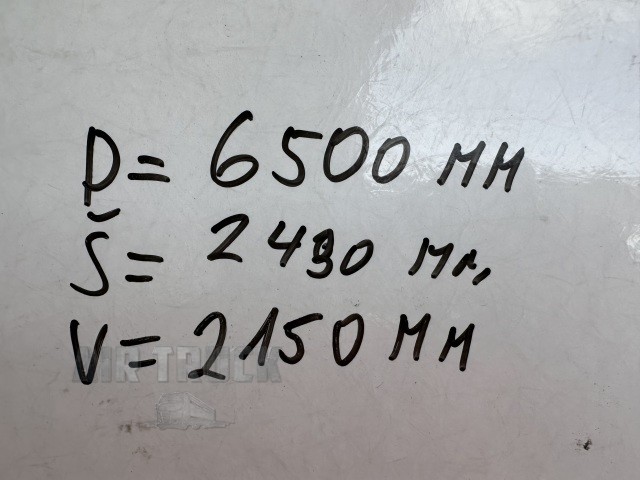 D= 6500 mm
Š= 2490 mm
V= 2150 mm
AIR-TRUCK